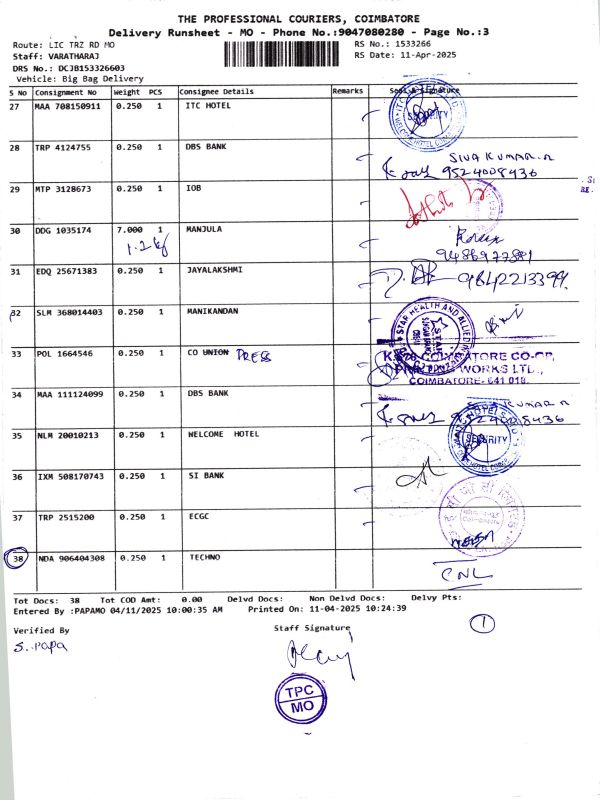 THE PROFESSIONAL COURIERS, COIMBATORE
Delivery Runsheet - MO - Phone No.:9047080280 - Page No.:3
Route: LIC TRZ RD MO RS No.: 1533266
Staff: VARATHARAJ RS Date: 11-Apr-2025
DRS No.: DCJB153326603
Vehicle: Big Bag Delivery
S No Consignment No Weight PCS Consignee Details Remarks Seal & Signature
27 MAA 708150911 0.250 1 ITC HOTEL
SECURITY
28 TRP 4124755 0.250 1 DBS BANK
SIVA KUMAR.R
9524008436
29 MTP 3128673 0.250 1 IOB
30 DDG 1035174 7.000 1 MANJULA
1.2 kg
9486977881
31 EDQ 25671383 0.250 1 JAYALAKSHMI
9842213399.
32 SLM 368014403 0.250 1 MANIKANDAN
STAR HEALTH AND ALLIED
33 POL 1664546 0.250 1 CO UNION PRESS
COIMBATORE CO-OP,
WORKS LTD.,
COIMBATORE-641 018.
34 MAA 111124099 0.250 1 DBS BANK
KUMAR.R
9524008436
35 NLM 20010213 0.250 1 WELCOME HOTEL
SECURITY
36 IXM 508170743 0.250 1 SI BANK
37 TRP 2515200 0.250 1 ECGC
38 NDA 906404308 0.250 1 TECHNO
CNL
Tot Docs: 38 Tot COD Amt: 0.00 Delvd Docs: Non Delvd Docs: Delvy Pts:
Entered By :PAPAMO 04/11/2025 10:00:35 AM Printed On: 11-04-2025 10:24:39
1
Verified By Staff Signature
S. Papa
TPC
MO